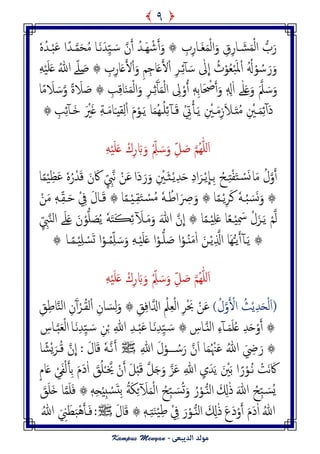 ﴿ ٩ ﴾
رَبُّ الْمَشَارِقِ وَالْمَغَارِبِ ۞ وَأَشْهَدُ أَنَّ سَيِّدَنَا مُحَمَّدًا عَبْدُهُ
وَرَسُوْلُهُ الْمَبْعُوْثُ إِلَى سَآئِرِ الْأَعَاجِمِ وَالْأَعَارِبِ ۞ صَلَّى اللهُ عَلَيْهِ
وَسَلَّمَ وَعَلَى أٰلِهِ وَأَصْحَابِهِ أُولِى الْمَآثِرِ وَالْمَنَاقِبِ ۞ صَلَاةً وَّسَلَامًا
دَآئِمَيْنِ مُتَلَازِمَيْنِ يَأْتِيْ قَآئِلُهُمَا يَوْمَ الْقِيَامَةِ غَيْرَ خَآئِبِ ۞
اَللّٰهُمَّ صَلِّ وَسَلِّمْ وَبَارِكْ عَلَيْهِ
أَوَّلُ مَا نَسْتَفْتِحُ بِإِيْرَادِ حَدِيْثَيْنِ وَرَدَا عَنْ نَبِيٍّ كَانَ قَدْرُهُ عَظِيْمًا
۞ وَنَسَبُهُ كَرِيْمًا ۞ وَصِرَاطُهُ مُسْتَقِيْمًا ۞ قَالَ فِيْ حَقِّهِ مَنْ
لَّمْ يَزَلْ سَمِيْعًا عَلِيْمًا ۞ إِنَّ اللهَ وَمَلَآئِكَتَهُ يُصَلُّوْنَ عَلَى النَّبِيِّ
۞ يَآأَيُّهَا الَّذِيْنَ أٰمَنُوْا صَلُّوْا عَلَيْهِ وَسَلِّمُوْا تَسْلِيْمًا ۞
اَللّٰهُمَّ صَلِّ وَسَلِّمْ وَبَارِكْ عَلَيْهِ
(اَلْحَدِيْثُ الْأَوَّلُ) عَنْ بَحْرِ الْعِلْمِ الدَّافِقِ ۞ وَلِسَانِ الْقُرْآنِ النَّاطِقِ
۞ أَوْحَدِ عُلَمَآءِ النَّاسِ ۞ سَيِّدِنَا عَبْدِ اللهِ بْنِ سَيِّدِنَا الْعَبَّاسِ
۞ رَضِيَ اللهُ عَنْهُمَا أَنَّ رَسُوْلَ اللهِ ﷺ أَنَّهُ قَالَ: إِنَّ قُرَيْشًا
كَانَتْ نُوْرًا بَيْنَ يَدَيِ اللهِ عَزَّ وَجَلَّ قَبْلَ أَنْ يَخْلُقَ أٰدَمَ بِأَلْفَيْ عَامٍ
يُسَبِّحُ اللهَ ذٰلِكَ النُّوْرُ وَتُسَبِّحُ الْمَلَآئِكَةُ بِتَسْبِيْحِهِ ۞ فَلَمَّا خَلَقَ
اللهُ أٰدَمَ أَوْدَعَ ذٰلِكَ النُّوْرَ فِيْ طِيْنَتِهِ ۞ قَالَ ﷺ: فَأَهْبَطَنِيَ اللهُ
Kampus Menyan - مولد الديبعى